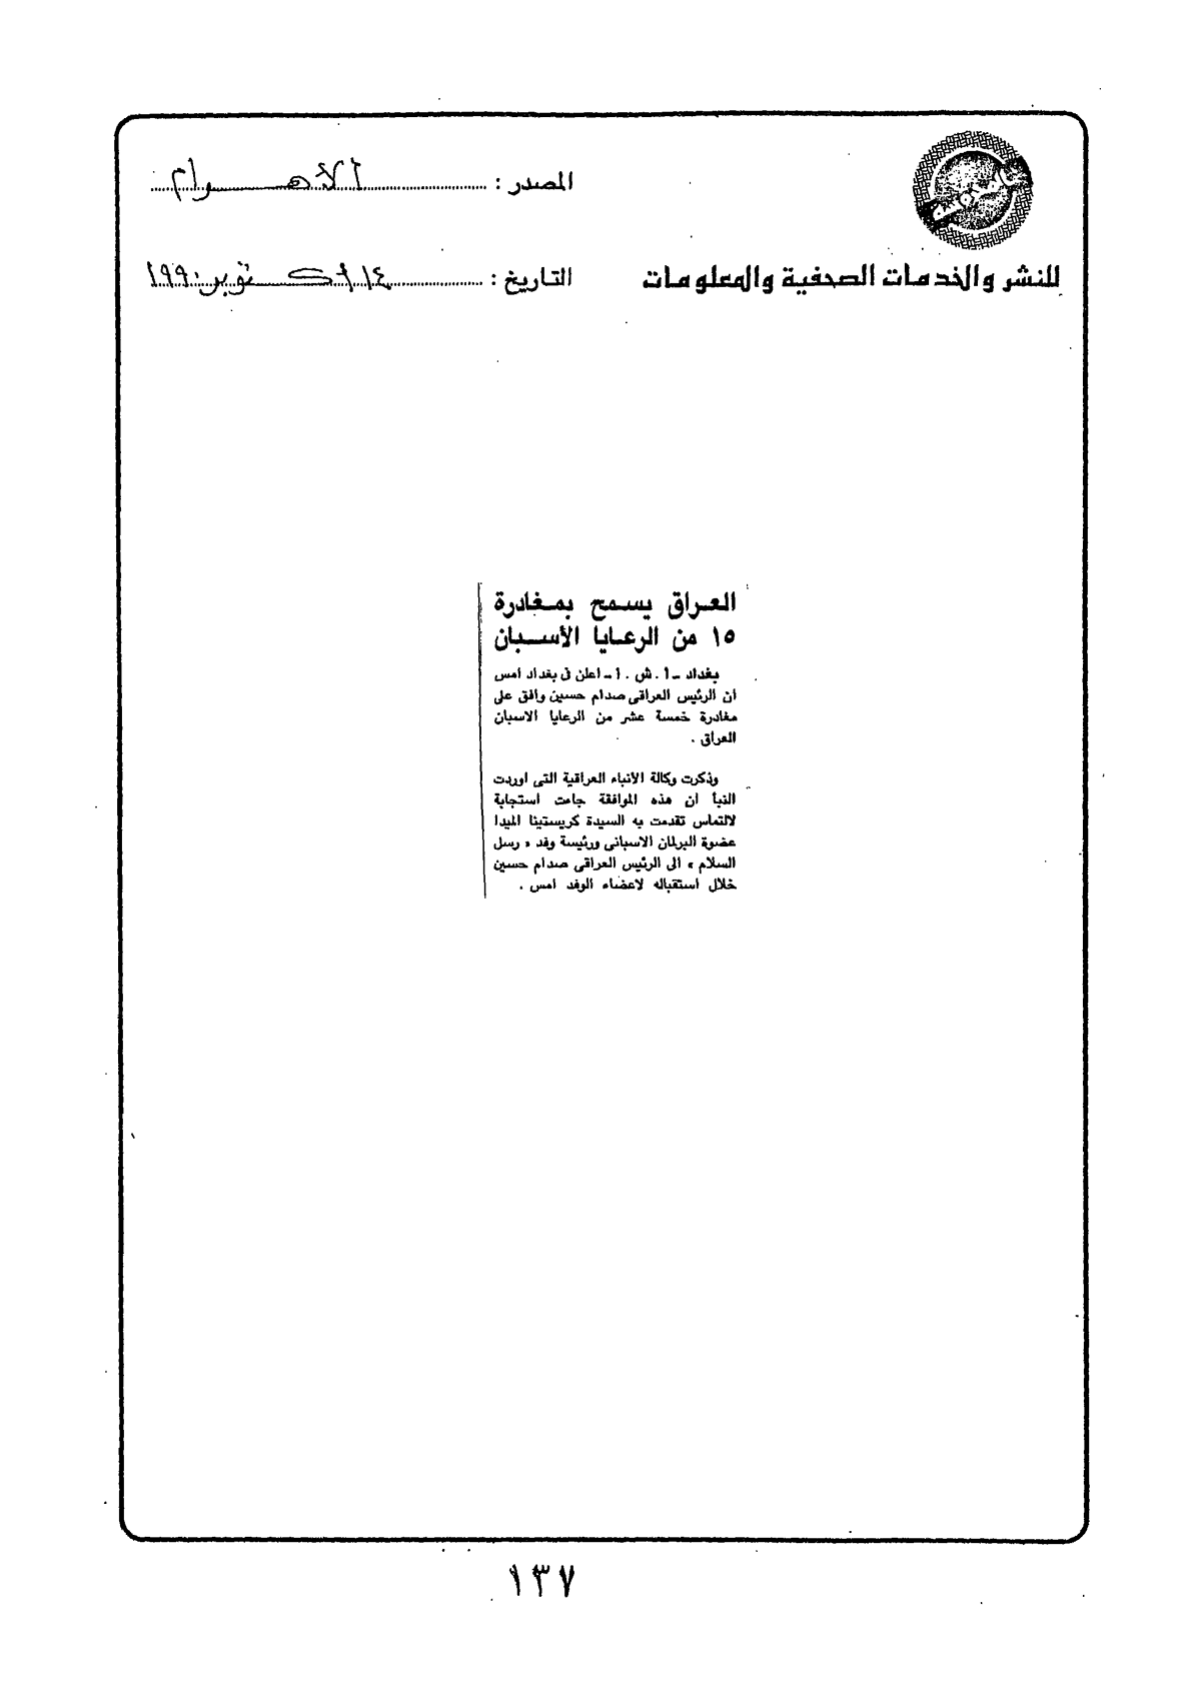 المصدر : الأهرام
للنشر والخدمات الصحفية والمعلومات
التاريخ : ١٤ أكتوبر ١٩٩٠
العراق يسمح بمغادرة
١٥ من الرعايا الأسبان
بغداد ـ أ . ش . أ ـ اعلن فى بغداد امس
ان الرئيس العراقى صدام حسين وافق على
مغادرة خمسة عشر من الرعايا الاسبان
العراق .
وذكرت وكالة الأنباء العراقية التى اوردت
النبأ ان هذه الموافقة جاءت استجابة
لالتماس تقدمت به السيدة كريستينا الميدا
عضوة البرلمان الاسبانى ورئيسة وفد « رسل
السلام » الى الرئيس العراقى صدام حسين
خلال استقباله لاعضاء الوفد امس .
١٣٧